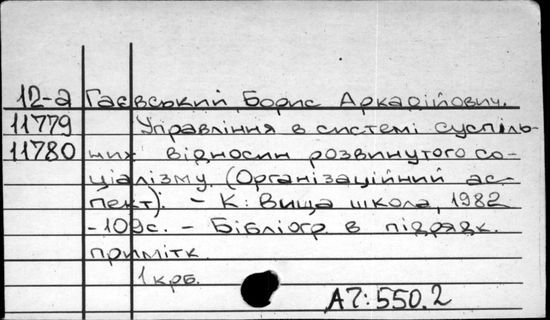 12-а Гаєвський Борис Аркадійович.
11779 Управління в системі суспіль-
11780 них відносин розвинутого со-
ціалізму. (Організаційний ас-
пект). - К: Вища школа, 1982
-109с. - Бібліогр. в підрядк.
примітк.
1крб.
А7:550.2